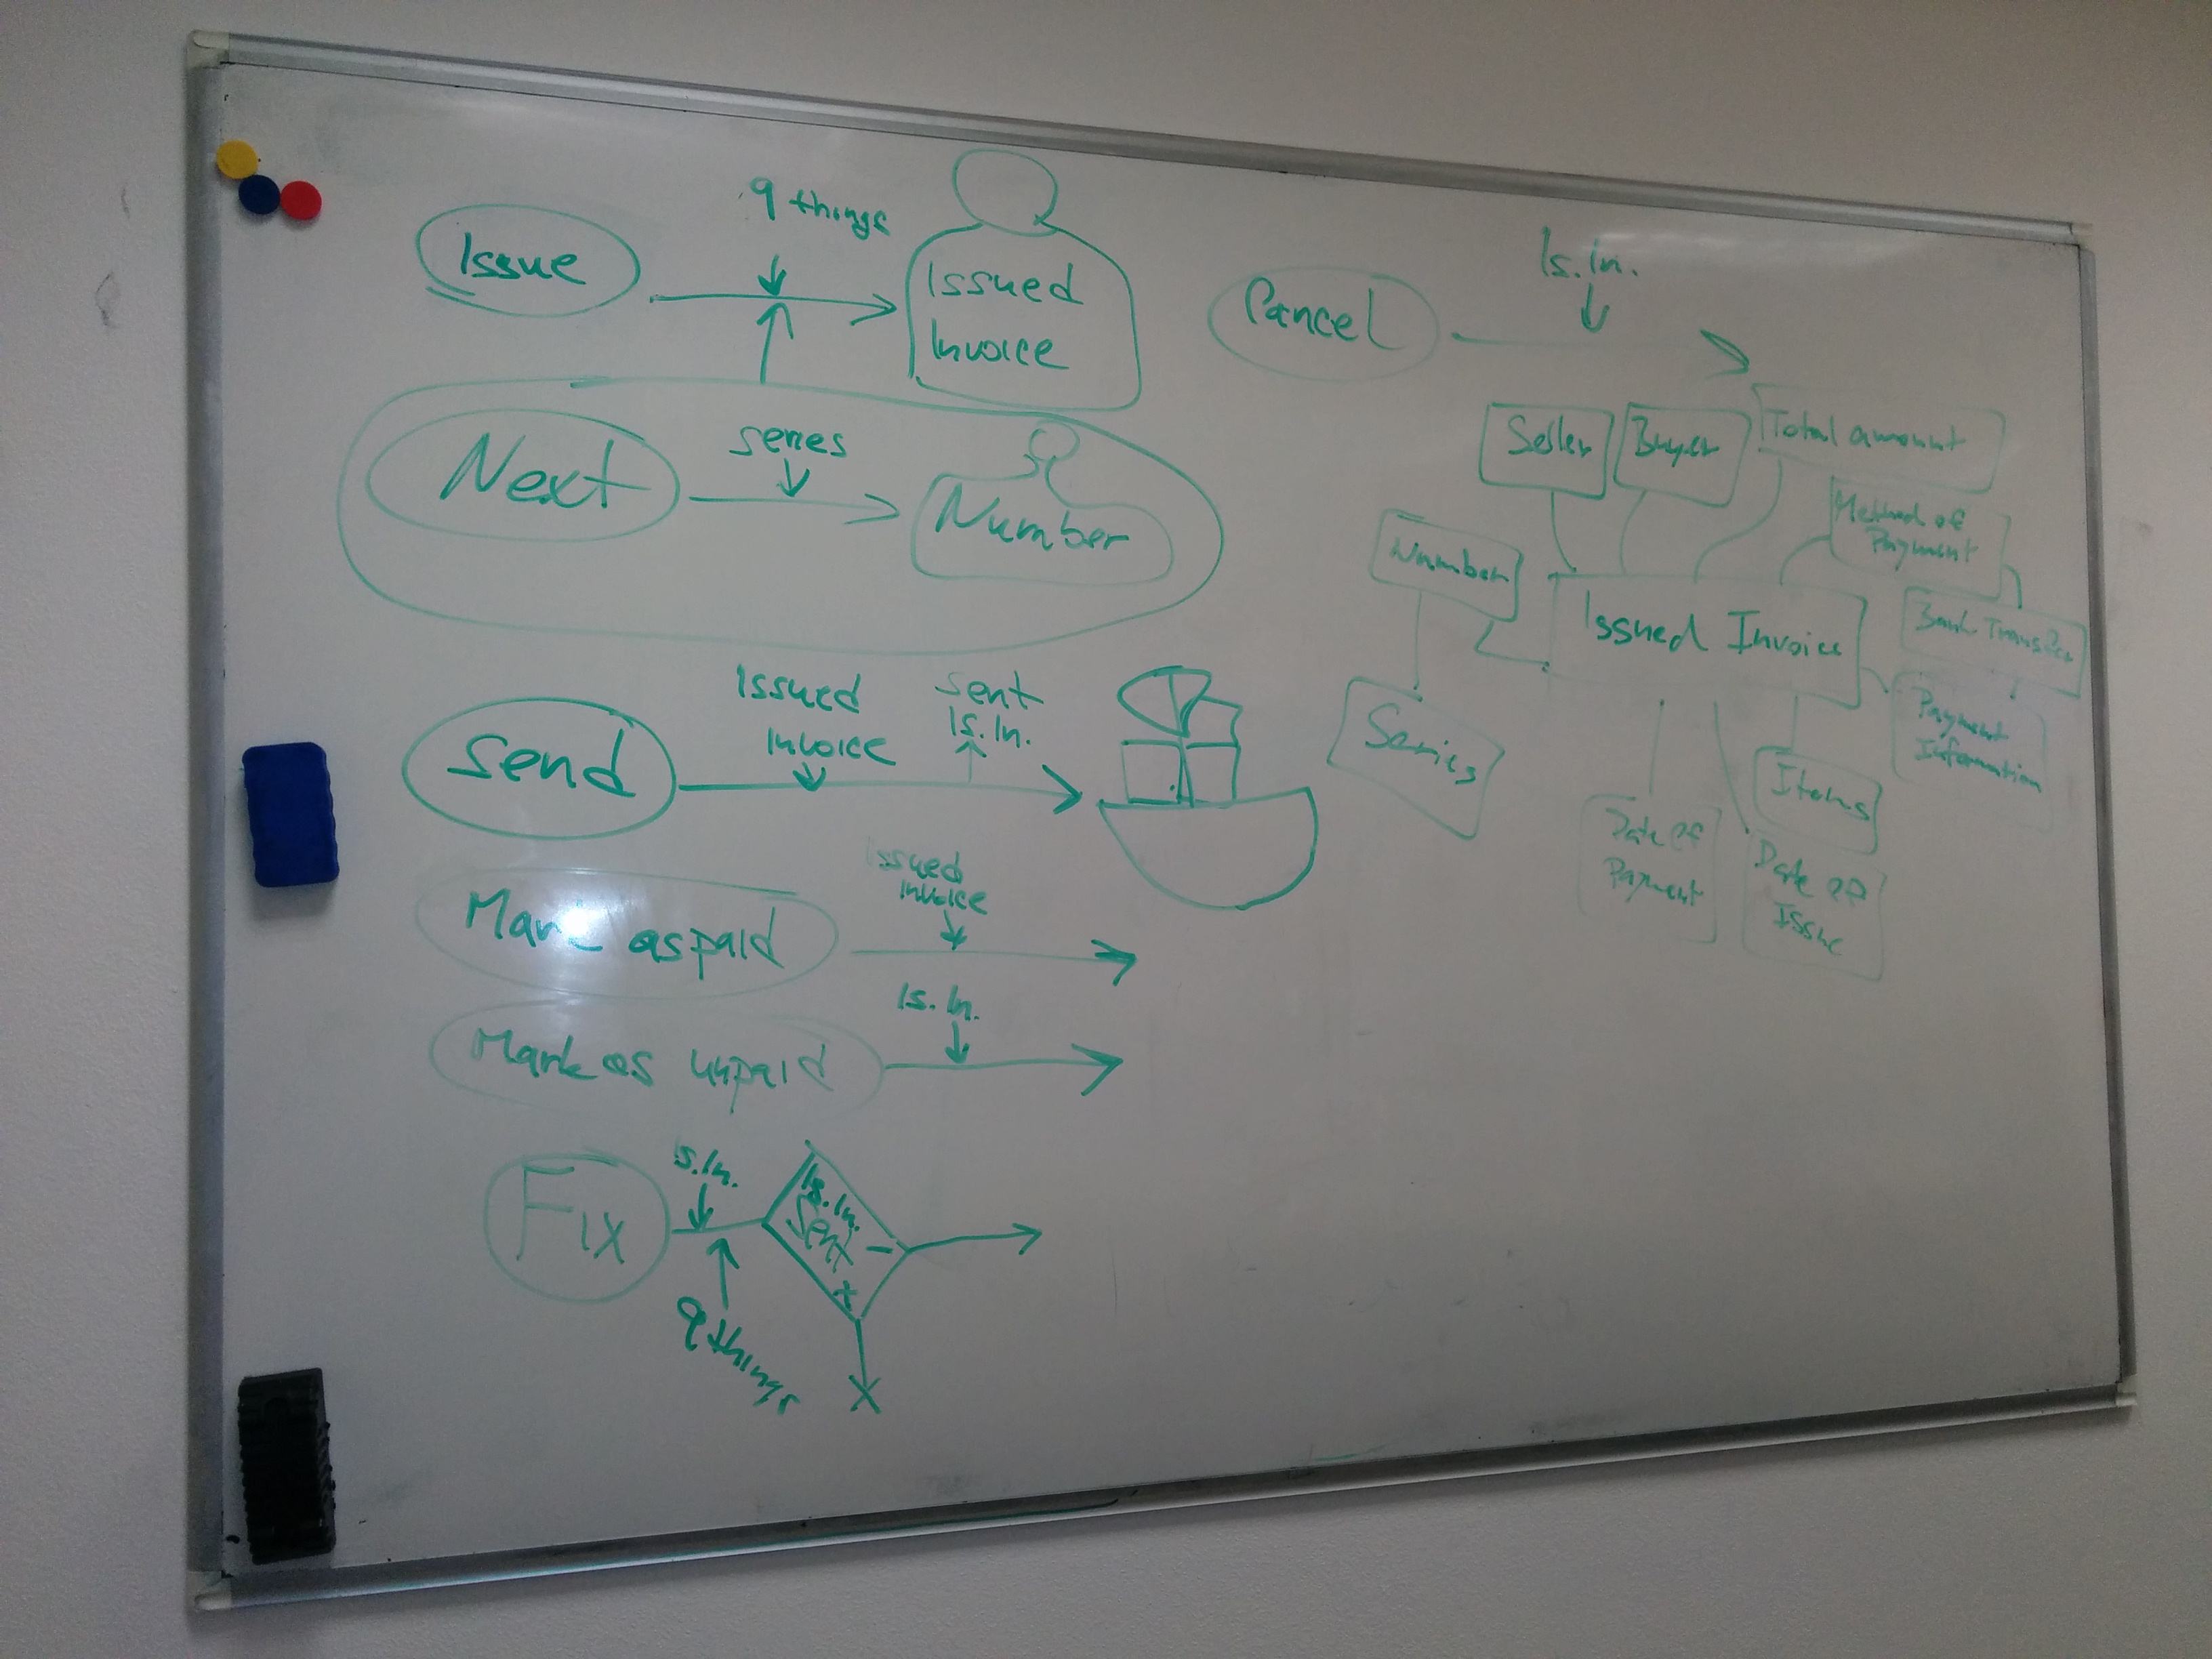 Issue
9 things
Issued
Invoice
Next
series
Number
Send
Issued
Invoice
sent
Is.In.
Mark as paid
Issued
Invoice
Mark as unpaid
Is.In.
Fix
Is.In.
9 things
Is.In.
Sent
-
+
Cancel
Is.In.
Seller
Buyer
Total amount
Method of
Payment
Number
Issued Invoice
Bank Transfer
Series
Payment
Information
Items
Date of
Payment
Date of
Issue